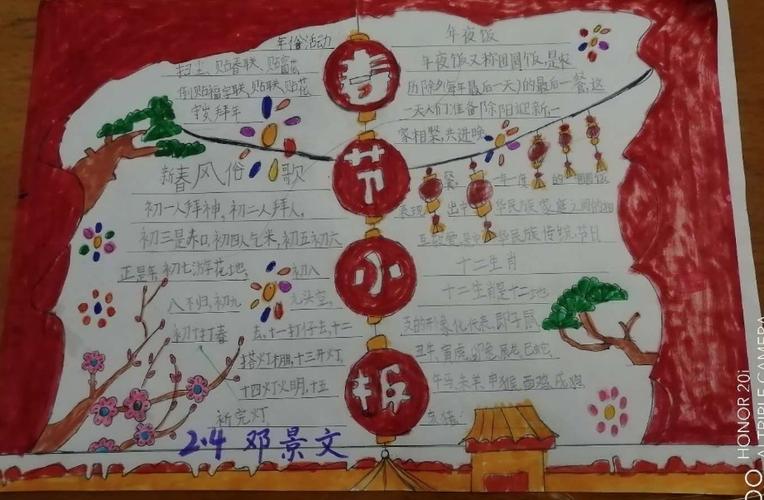 春节小报
年俗活动
扫尘、贴春联、贴窗花
倒贴福字联、贴联、贴花
守岁拜年
新春风俗歌
初一人拜神，初二人拜人，
初三是赤口，初四人乞米，初五初六
正是年，初七游花地，初八
八不归，初九九头空，
初十打春去，十一打仔去，十二
搭灯棚，十三开灯，
十四灯火明，十五
祈完灯
年夜饭
年夜饭又称团圆饭，是农
历除夕(每年最后一天)的最后一餐，这
一天人们准备除旧迎新，一
家相聚，共进晚
餐，一年一度的团圆饭
表现出中华民族家庭之间的相
互敬爱，是中华民族传统节日
十二生肖
十二生肖是十二地
支的形象化代表，即子鼠
丑牛、寅虎、卯兔、辰龙、巳蛇、
午马、未羊、申猴、酉鸡、戌狗、
亥猪。
2.4 邓景文
HONOR 20i
AI TRIPLE CAMERA